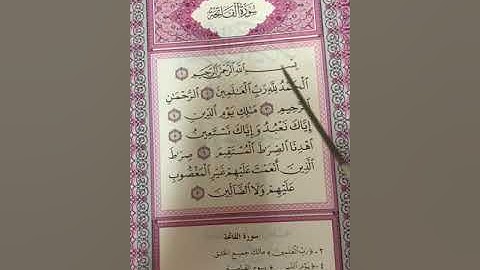 سُورَةُ الْفَاتِحَةِ
بِسْمِ اللَّهِ الرَّحْمَٰنِ الرَّحِيمِ ۝١
الْحَمْدُ لِلَّهِ رَبِّ الْعَالَمِينَ ۝٢ الرَّحْمَٰنِ
الرَّحِيمِ ۝٣ مَالِكِ يَوْمِ الدِّينِ ۝٤
إِيَّاكَ نَعْبُدُ وَإِيَّاكَ نَسْتَعِينُ ۝٥
اهْدِنَا الصِّرَاطَ الْمُسْتَقِيمَ ۝٦ صِرَاطَ
الَّذِينَ أَنْعَمْتَ عَلَيْهِمْ غَيْرِ الْمَغْضُوبِ
عَلَيْهِمْ وَلَا الضَّالِّينَ ۝٧
سورة الفاتحة
٢ - ﴿رَبِّ الْعَالَمِينَ﴾ مالك جميع الخلق
٤ - ﴿يَوْمِ الدِّينِ﴾